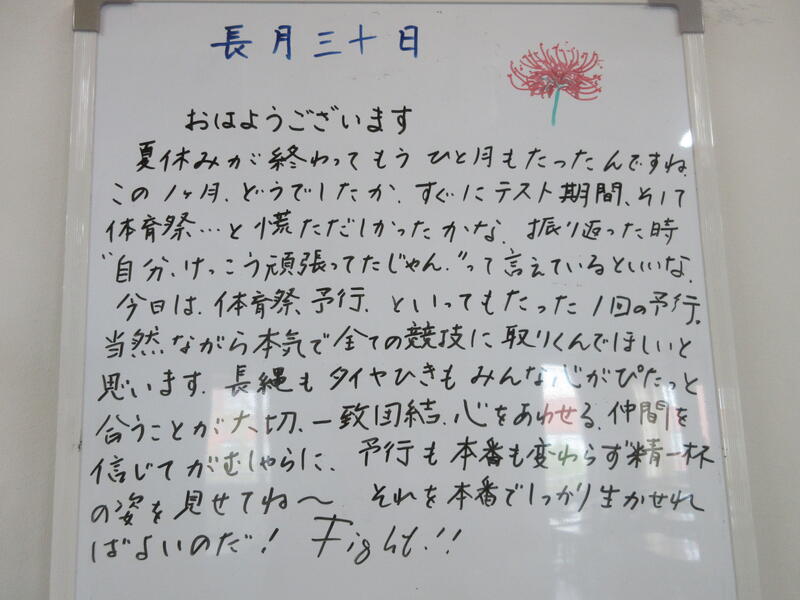 長月三十日
おはようございます
夏休みが終わってもうひと月もたったんですね。
この1ヶ月、どうでしたか。すぐにテスト期間、そして
体育祭…と慌ただしかったかな。振り返った時
"自分、けっこう頑張ってたじゃん。"って言えているといいな。
今日は、体育祭、予行、といってもたった1回の予行。
当然ながら本気で全ての競技に取りくんでほしいと
思います。長縄もタイヤひきもみんな心がぴたっと
合うことが大切、一致団結、心をあわせる、仲間を
信じてがむしゃらに、予行も本番も変わらず精一杯
の姿を見せてね〜 それを本番でしっかり生かせれ
ばよいのだ! Fight!!